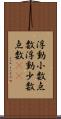 浮動小数点
数浮動少数
点数